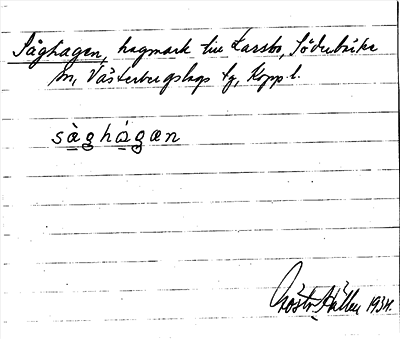 Såghagen, hagmark till Larsbo, Söderbärke
sn, Västerbergslags tg, Kopp. l.
sàghágæn
Gösta Hållen 1934.